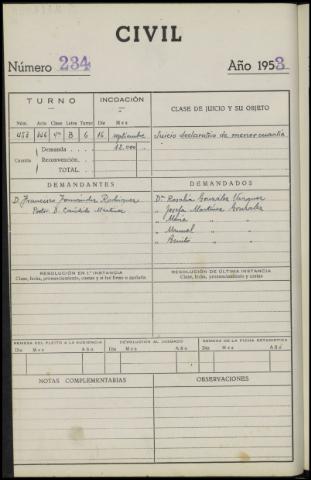 CIVIL
Número 234 Año 1953
TURNO INCOACIÓN CLASE DE JUICIO Y SU OBJETO
Núm. Auto Clase Letra Turno Día Mes
B 6 16 septiembre Juicio declarativo de menor cuantía
Demanda 12.000 "
Cuantía Reconvención.
TOTAL
DEMANDANTES DEMANDADOS
D. Francisco Fernández Rodríguez Dª Rosalía González Vázquez
Procdor D. Cándido Martínez " Josefa Martínez González
" María " "
" Manuel " "
" Benito " "
RESOLUCIÓN EN 1.ª INSTANCIA RESOLUCIÓN DE ÚLTIMA INSTANCIA
Clase, fecha, pronunciamiento, costas y si fué firme o apelada Clase, fecha, pronunciamiento y costas
REMESA DEL PLEITO A LA AUDIENCIA DEVOLUCIÓN AL JUZGADO REMESA DE LA FICHA ESTADÍSTICA
Día Mes Año Día Mes Año Día Mes Año
NOTAS COMPLEMENTARIAS OBSERVACIONES